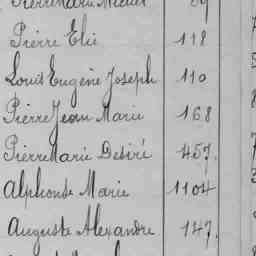 Pierre Marie
Pierre Elie 118
Louis Eugène Joseph 110
Pierre Jean Marie 168
Pierre Marie Desiré 457.
Alphonse Marie 1104
Auguste Alexandre 147.